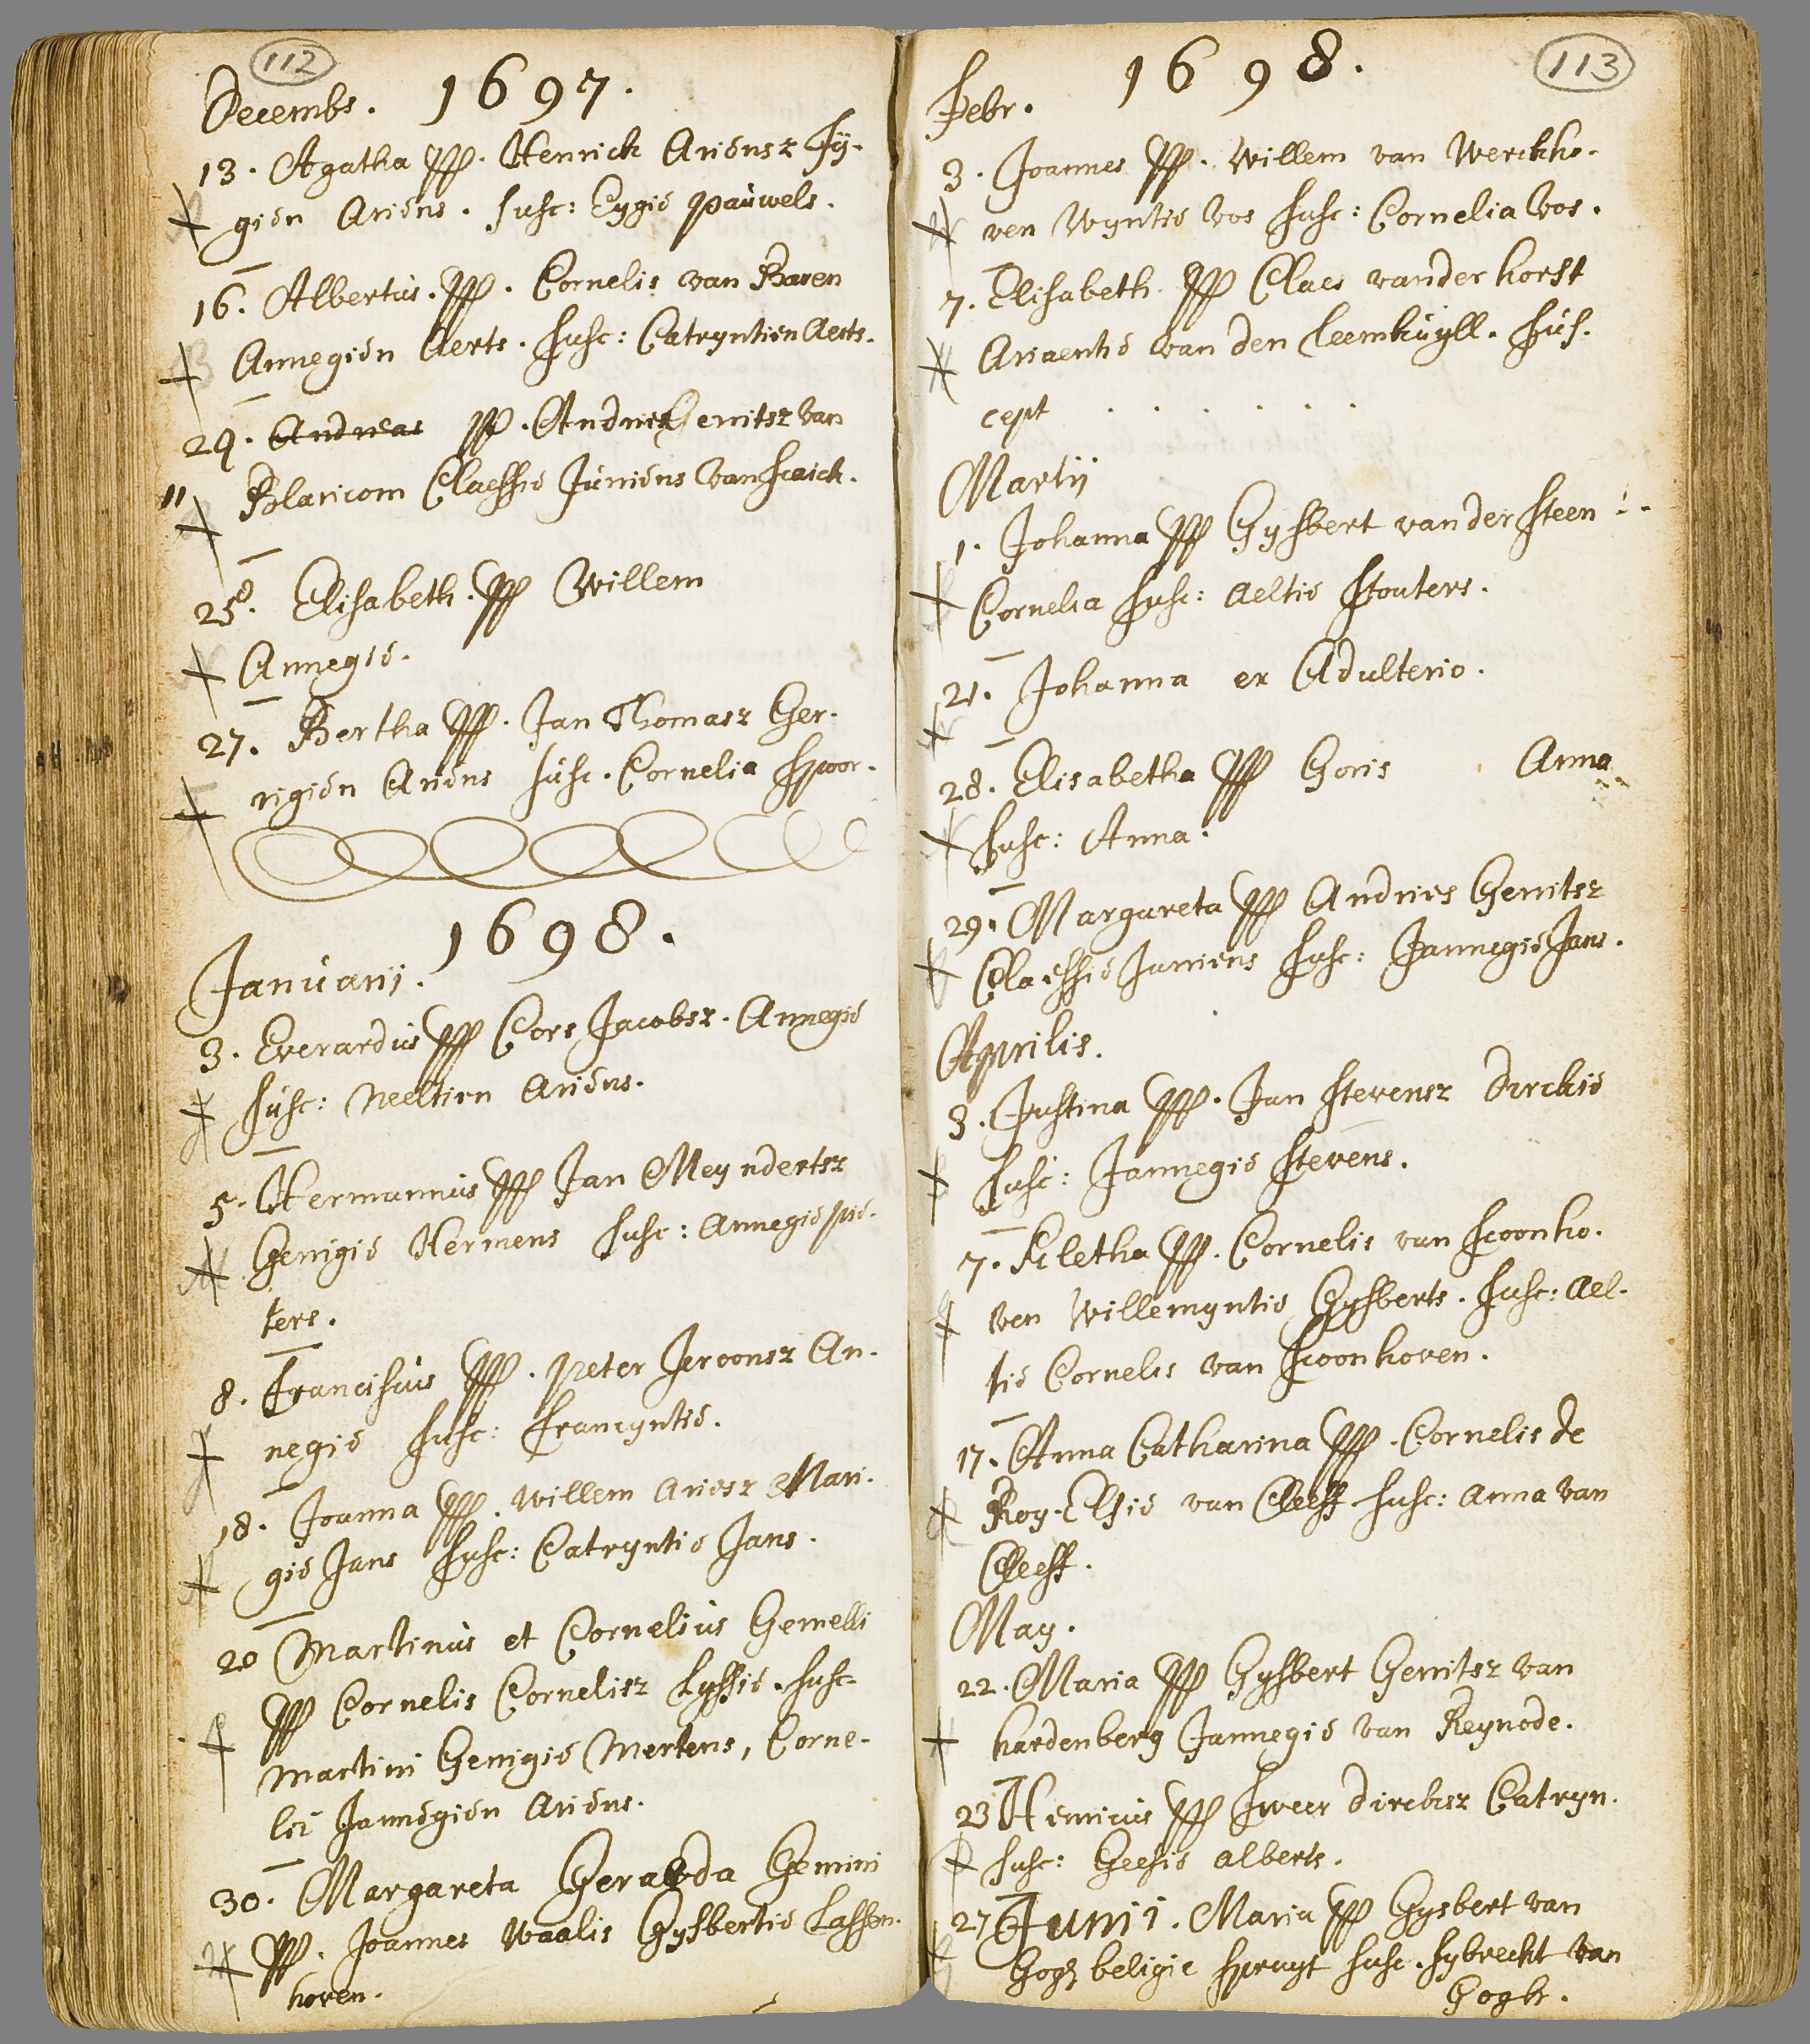 112
Decembs. 1697.
13. Agatha ppp. Henrick Ariensz Fy-
gien Ariens. susc: Eygie pauwels.
16. Albertus. ppp. Cornelis van Baren
Annegien Aerts. susc: Catryntien Aerts.
29. Andreas pp. Andries Gerritsz van
Blaricom Claessie Juniens van Scaick.
25. Elisabeth. ppp Willem
Annegie.
27. Bertha ppp. Jan Thomasz Ger-
rigien Ariens susc. Cornelia spoor.
1698.
Januarij.
3. Everardus ppp Cors Jacobsz. Annegie
susc: Neeltien Ariens.
5. Hermannus ppp Jan Meyndertsz
Gerrigie Hermens susc: Annegie pie-
ters.
8. Franciscus ppp. peter Jeroonsz An-
negie susc: francyntie.
18. Joanna ppp. Willem Ariesz Mari-
gie Jans susc: Catryntie Jans.
20 Martinus et Cornelius Gemelli
ppp Cornelis Cornelisz Lyssie. susc-
Martini Gerrigie Mertens, Corne-
lei Jannegien Ariens.
30. Margareta Gerarda Gemini
ppp. Joannes Waalis Gysbertie Lassen-
hoven.
113
1698.
Febr.
3. Joannes ppp. Willem van Werckho-
ven Wyntie Vos susc: Cornelia Vos.
7. Elisabeth ppp Claes vander horst
Ariaentie van den Leemkuyll. sus-
cept . . . . . .
Martij
1. Johanna ppp Gysbert van der Steen
Cornelia susc: Aeltie Stouters.
21. Johanna ex Adulterio.
28. Elisabetha ppp Goris Anna
susc: Anna.
29. Margareta ppp Andries Gerritsz
Claessie Jurriens susc: Jannegie Jans.
Aprilis.
3. Justina ppp. Jan Stevensz Dirckie
susc: Jannegie Stevens.
7. Aletha ppp. Cornelis van Scoonho-
ven Willemyntie Gysberts. susc: Ael-
tie Cornelis van Scoonhoven.
17. Anna Catharina ppp. Cornelis de
Roy. Elsie van Cleeff susc: Anna van
Cleeff.
May.
22. Maria ppp Gysbert Gerritsz van
hardenberg Jannegie van Reynode.
23 Henricus ppp Sweer Dircksz Catryn.
susc: Geesie alberts.
27 Junii. Maria ppp Gysbert van
Gogh beligie spruyt susc. sybrecht van
Gogh.